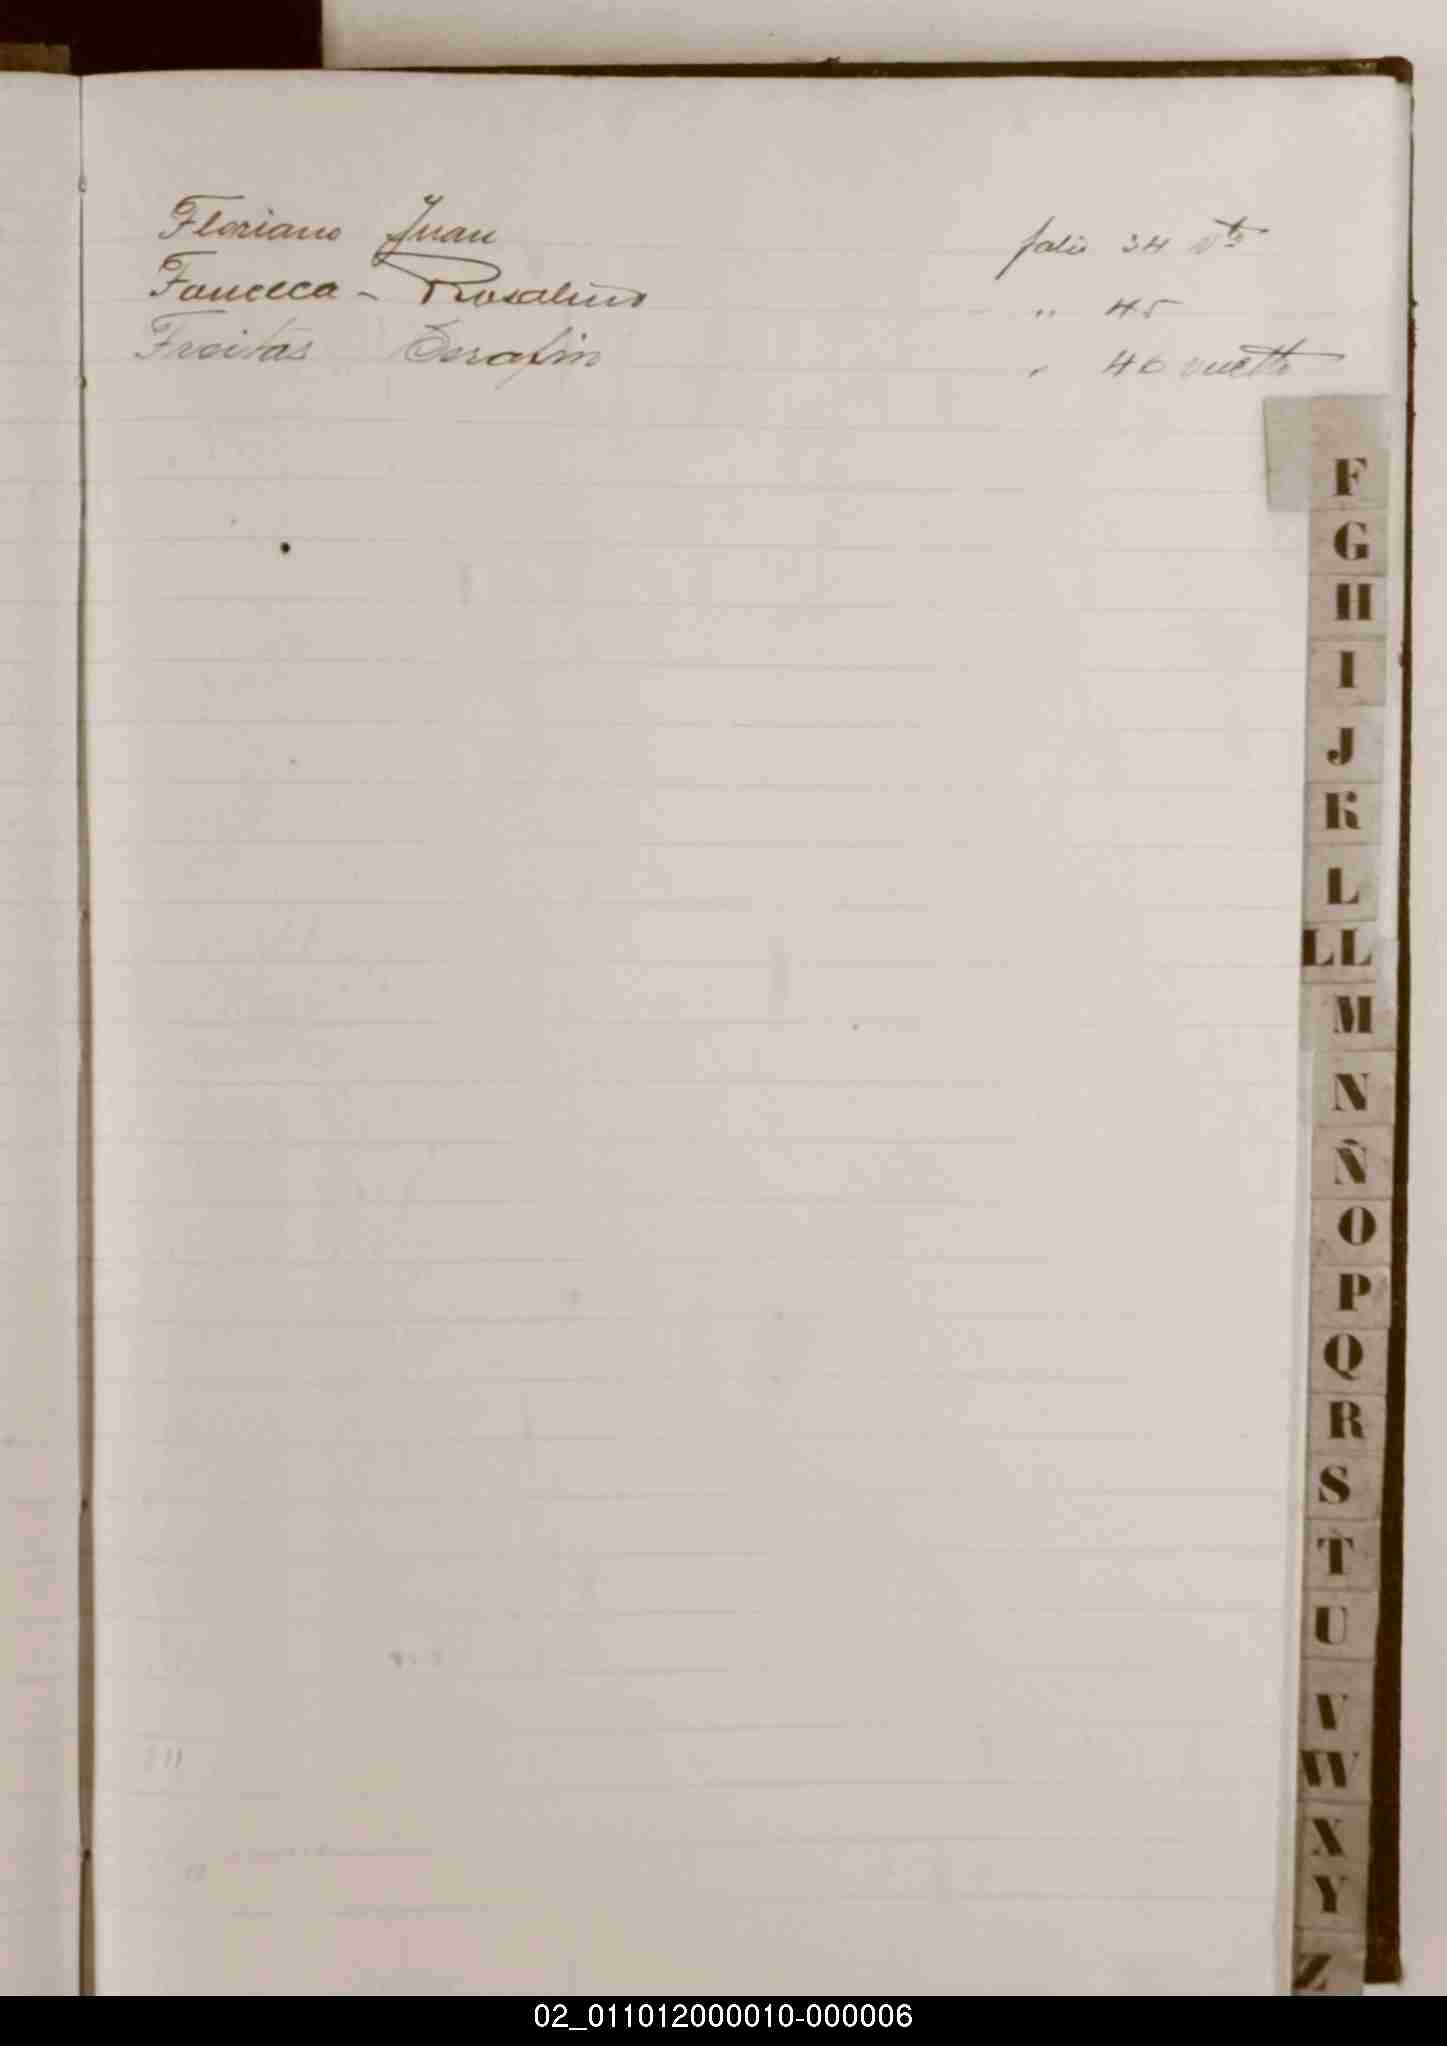 Floriano Juan folio 34 vto
Fonceca - Rosalino " 45
Freitas Serafin " 46 vuelto
F
G
H
I
J
K
L
LL
M
N
Ñ
O
P
Q
R
S
T
U
V
W
X
Y
Z
02_011012000010-000006